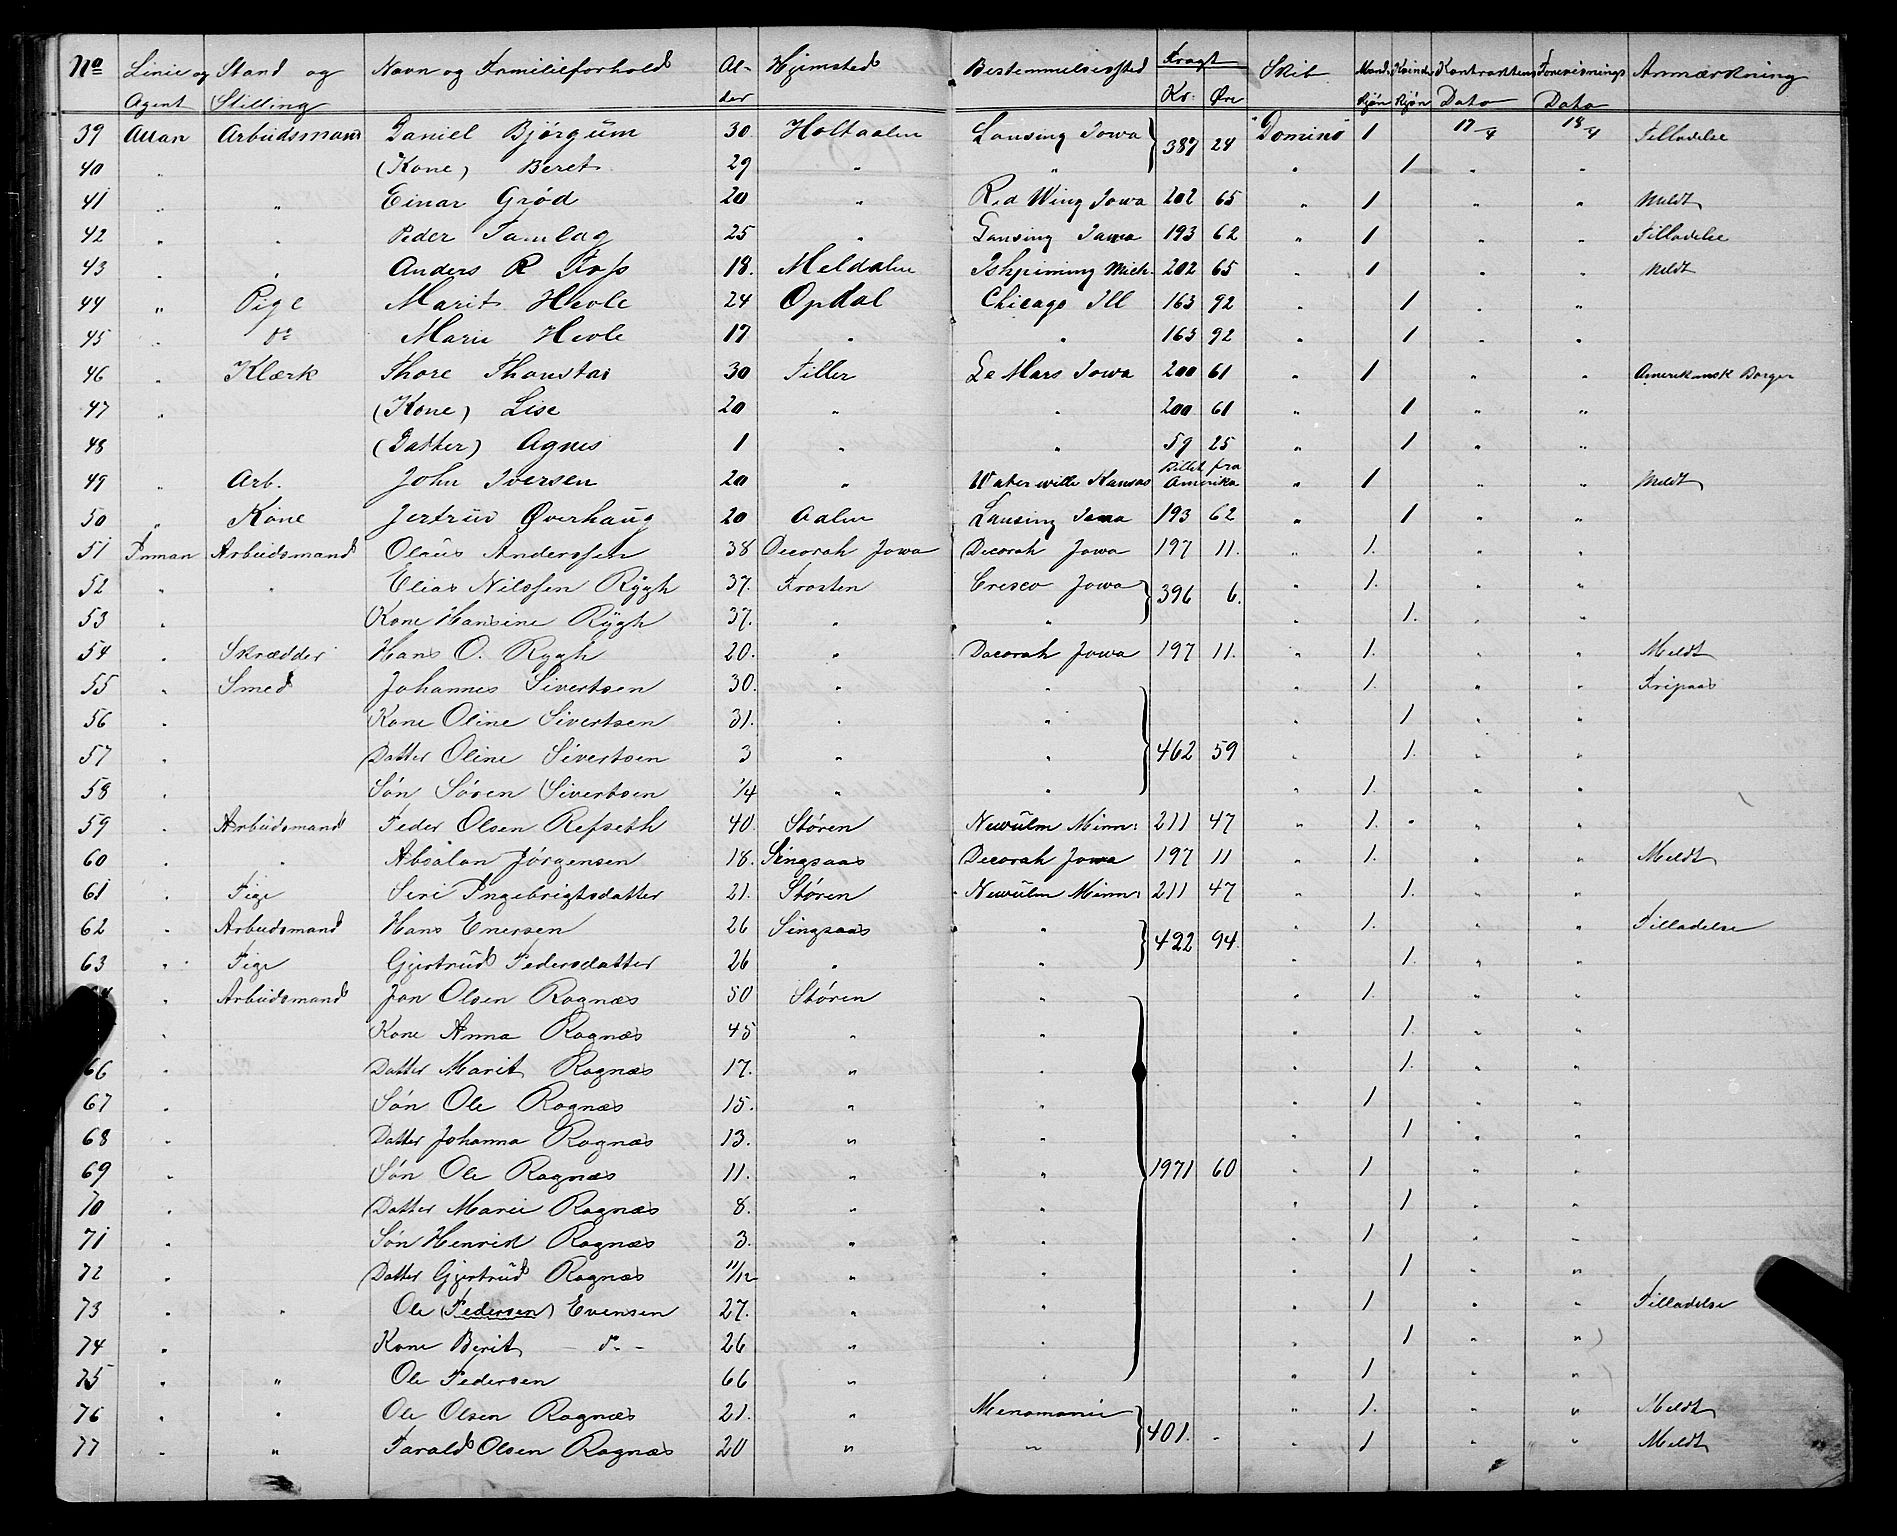 No Linie og Agent Stand og Stilling Navn og Familieforhold Alder Hjemsted Bestemmelsessted Fragt Kr. Øre Skib Mandkjøn Kvindekjøn Kontraktens Dato Forevisnings Dato Anmærkning
39 Allan Arbeidsmand Daniel Bjørgüm 30 Holtaalen Lansing Iowa } 387 24 "Domino" 1 17/4 18/4 Tilladelse
40 " (Kone) Beret 29 " " " 1 " "
41 " " Einar Grød 20 " Red Wing Iowa 202 65 " 1 " " Meldt
42 " " Peder Tamlag 25 " Lansing Iowa 193 62 " 1 " " Tilladelse
43 " " Anders R Foss 18. Meldalen Ishpiming Mich. 202 65 " 1 " " Meldt
44 " Pige Marit Hevle 24 Opdal Chicago Ill 163 92 " 1 " "
45 " do Marie Hevle 17 " " 163 92 " 1 " "
46 " Klærk Thore Thonstai 30 Tiller Le Mars Iowa 200 61 " 1 " " Amerikansk Borger
47 " (Kone) Lise 20 " " 200 61 " 1 " "
48 (Datter) Agnes 1 " " 59 25 " 1 " "
49 " Arb. John Iversen 20 " Waterwille Kansas Billet fra Amerika " 1 " " Meldt
50 " Kone Jertrüd Øverhaug 20 Aalen Lansing Iowa 193 62 " 1 " "
51 Inman Arbeidsmand Olaüs Anderssen 38 Decorah Jowa Decorah Jowa 197 11. " 1. " "
52 " " Elias Nilssen Rÿgh 37. Frosten Cresco Jowa } 396 6. " 1. " "
53 " Kone Hansine Rÿgh 37. " " " 1. " "
54 " Skrædder Hans O. Rygh 20. " Decorah Jowa 197 11. " 1. " " Meldt
55 " Smed Johannes Sivertsen 30. " " " 1. " " Fripass
56 " Kone Oline Sivertsen 31. " " " 1 " "
57 " Datter Oline Sivertsen 3 " " } 462 59 " 1. " "
58 " Søn Søren Sivertsen 1/4 " " " 1. " "
59 " Arbeidsmand Peder Olsen Refseth 40. Støren Newülm Minn: 211 47 " 1. " " "
60 " " Absalon Jørgensen 18. Singsaas Decorah Jowa 197 11 " 1. " " Meldt
61 " Pige Seri Ingebrigtsdatter 21. Støren Newülm Minn: 211 47 " 1. " "
62 " Arbeidsmand Hans Enersen 26 Singsaas " } 422 94 " 1. " " Tilladelse
63 " Pige Gjertrüd Pedersdatter 26 " " " 1. " "
" Arbeidsmand Jon Olsen Rognæs 50 Støren " " 1. " "
" Kone Anna Rognæs 45 " " " 1. " "
66 " Datter Marit Rognæs 17. " " " 1. " "
67 " Søn Ole Rognæs 15. " " " 1 " "
68 " Datter Johanna Rognæs 13. " " " 1 " "
69 " Søn Ole Rognæs 11. " " } 1971 60 " 1 " "
70 " Datter Marie Rognæs 8. " " " 1 " "
71 " Søn Henrik Rognæs 3. " " " 1 " "
72 " Datter Gjertrüd Rognæs 11/12 " " " 1 " "
73 " " Ole (Pedersen) Evensen 27. " " " 1 " " Tilladelse
74 " Kone Berit - do - 26 " " " 1 " "
75 " " Ole Pedersen 66 " " " 1 " "
76 " " Ole Olsen Rognæs 21. " Menomonie } 401. - " 1. " " Meldt
77 " " Tarald Olsen Rognæs 20 " " " 1 " " Meldt